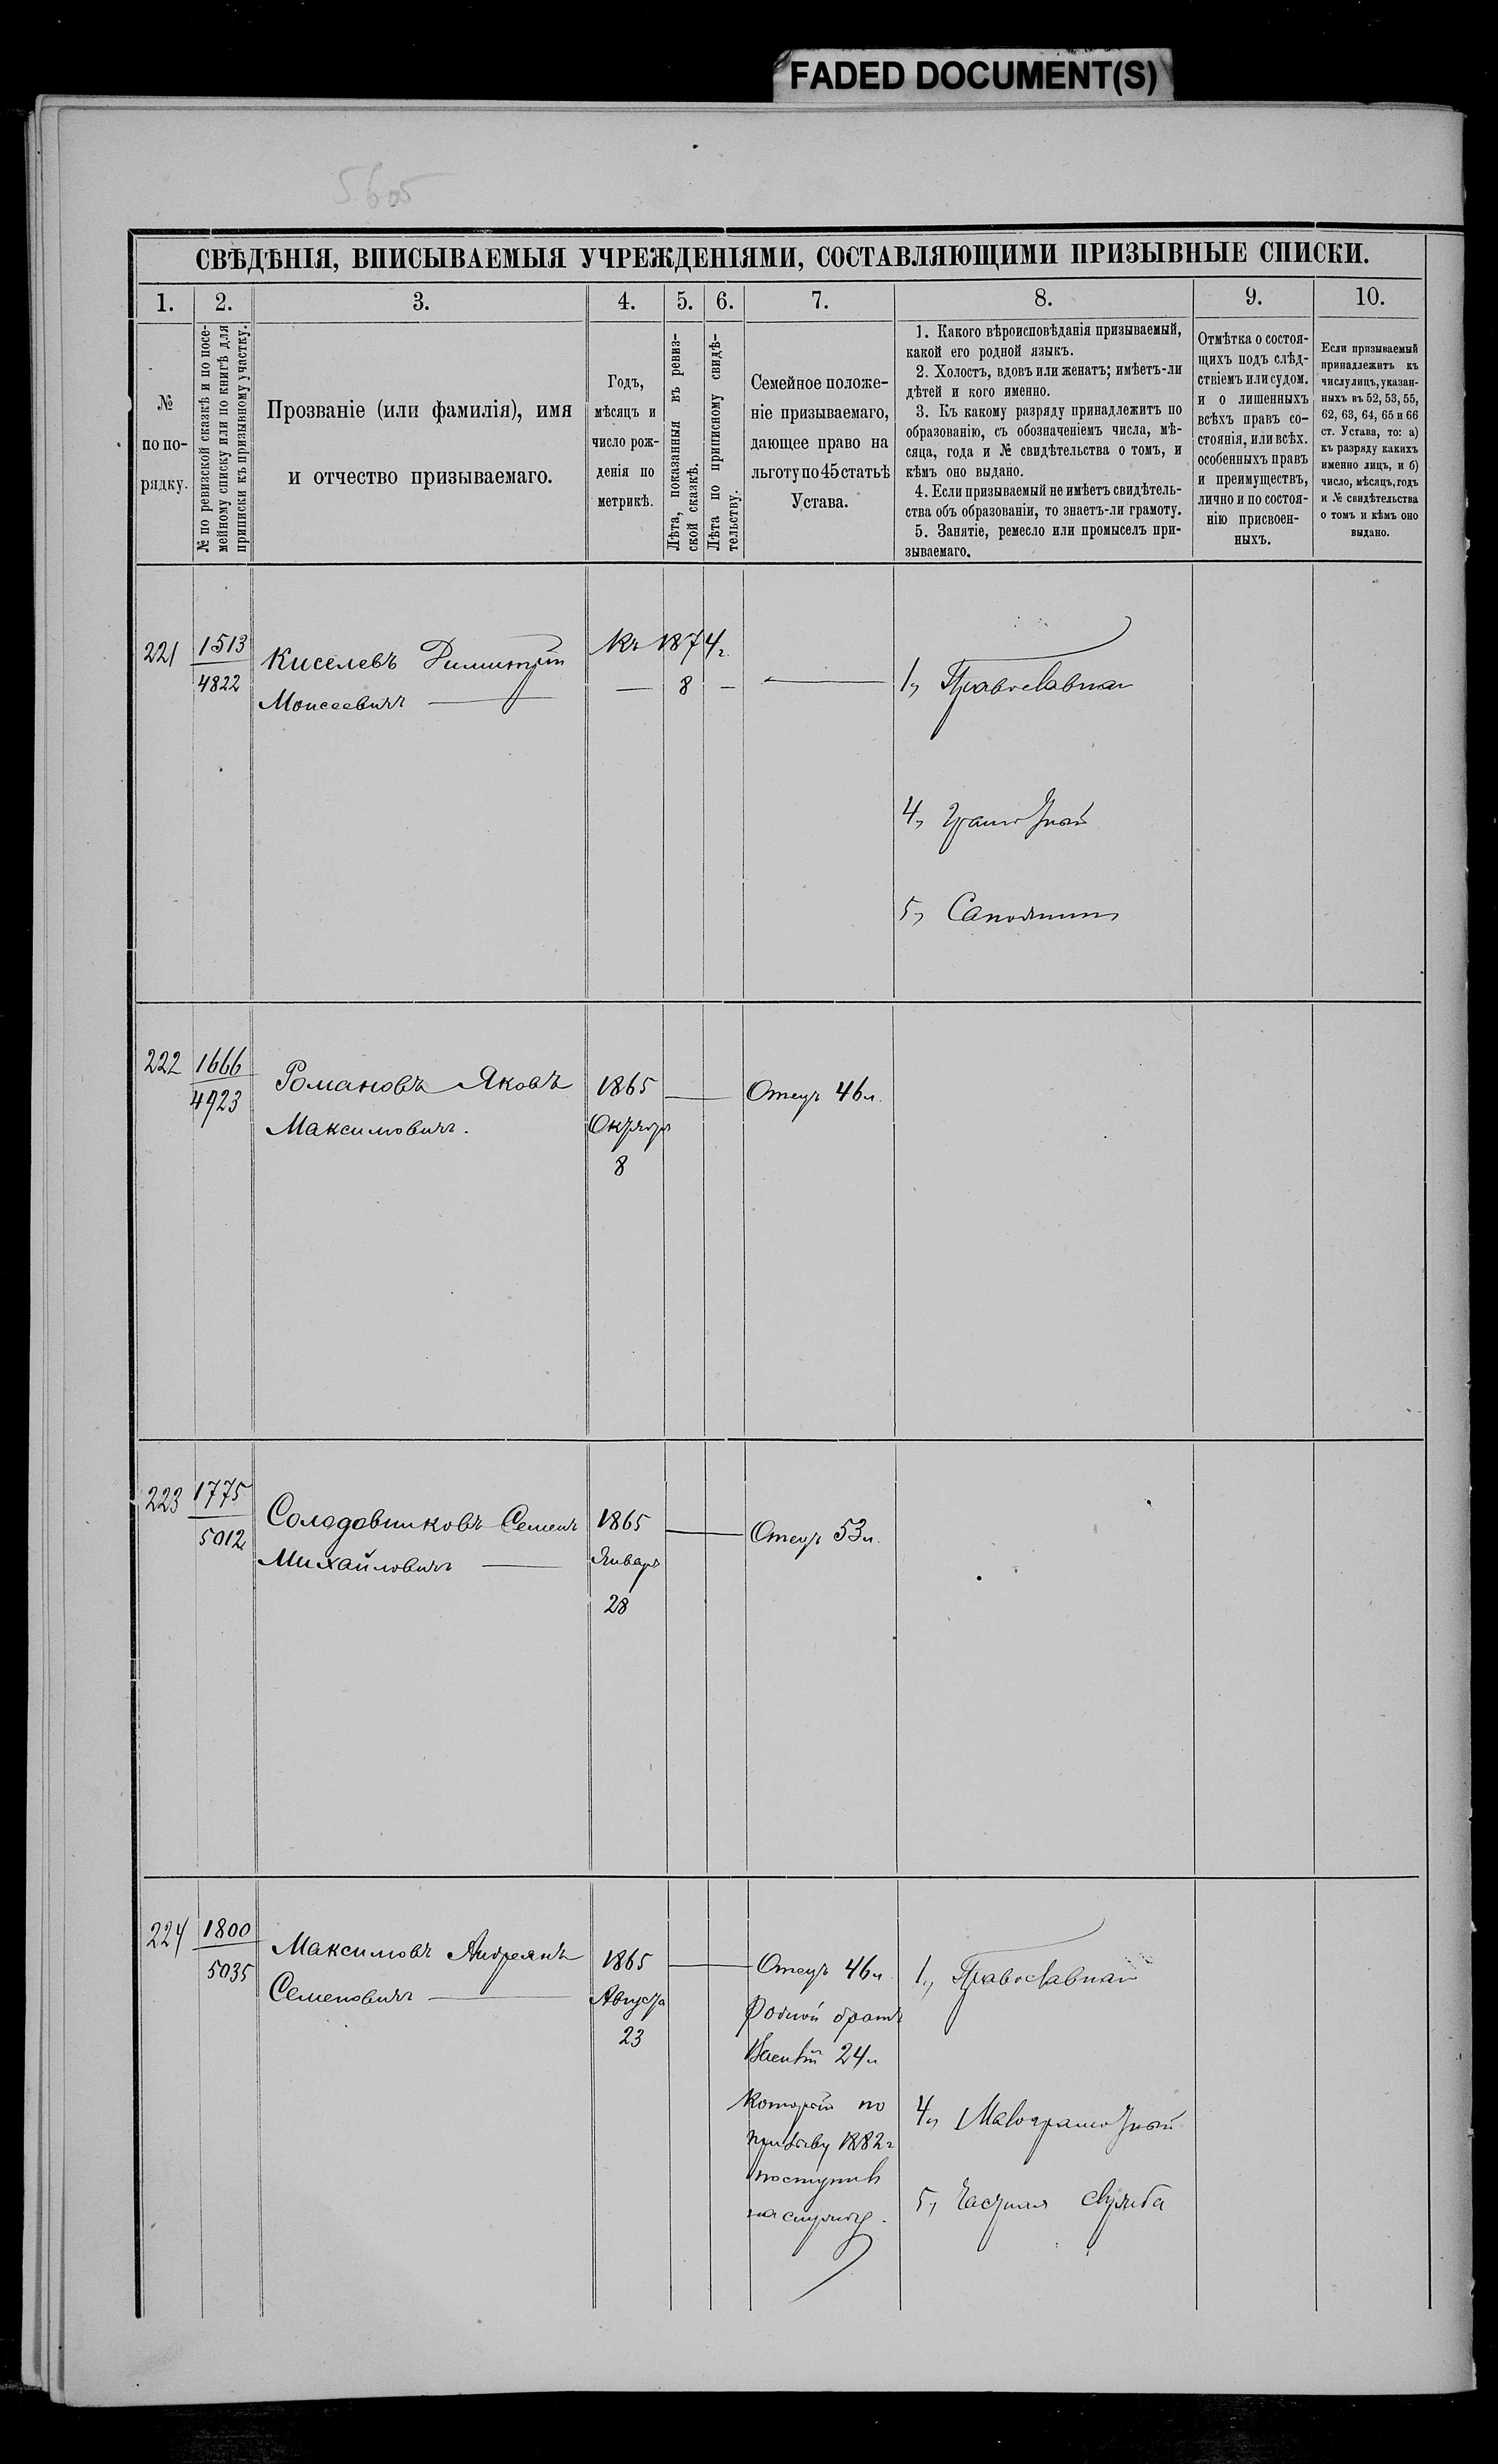 FADED DOCUMENT(S)
5605
СВѢДѢНІЯ, ВПИСЫВАЕМЫЯ УЧРЕЖДЕНІЯМИ, СОСТАВЛЯЮЩИМИ ПРИЗЫВНЫЕ СПИСКИ.
1. 2. 3. 4. 5. 6. 7. 8. 9. 10.
№
по по-
рядку.
№ по ревизской сказкѣ и по посе-
мейному списку или по книгѣ для
приписки къ призывному участку.
Прозваніе (или фамилія), имя
и отчество призываемаго.
Годъ,
мѣсяцъ и
число рож-
денія по
метрикѣ.
Лѣта, показанныя въ ревиз-
ской сказкѣ.
Лѣта по приписному свидѣ-
тельству.
Семейное положе-
ніе призываемаго,
дающее право на
льготу по 45 статьѣ
Устава.
1. Какого вѣроисповѣданія призываемый,
какой его родной языкъ.
2. Холостъ, вдовъ или женатъ; имѣетъ-ли
дѣтей и кого именно.
3. Къ какому разряду принадлежитъ по
образованію, съ обозначеніемъ числа, мѣ-
сяца, года и № свидѣтельства о томъ, и
кѣмъ оно выдано.
4. Если призываемый не имѣетъ свидѣтель-
ства объ образованіи, то знаетъ-ли грамоту.
5. Занятіе, ремесло или промыселъ при-
зываемаго.
Отмѣтка о состоя-
щихъ подъ слѣд-
ствіемъ или судом.
и о лишенныхъ
всѣхъ правъ со-
стоянія, или всѣх.
особенныхъ правъ
и преимуществъ,
лично и по состоя-
нію присвоен-
ныхъ.
Если призываемый
принадлежитъ къ
числу лицъ, указан-
ныхъ въ 52, 53, 55,
62, 63, 64, 65 и 66
ст. Устава, то: а)
къ разряду какихъ
именно лицъ, и б)
число, мѣсяцъ, годъ
и № свидѣтельства
о томъ и кѣмъ оно
выдано.
221
1513
4822
Киселевъ Димитрій
Моисеевичъ —
Къ 1874 г.
— 8 —
—
1, Православная
4, Грамотный
5, Сапожникъ
222
1666
4923
Романовъ Яковъ
Максимовичъ.
1865
Октября
8
—
Отецъ 46 л.
223
1775
5012
Солодовниковъ Семенъ
Михайловичъ —
1865
Января
28
—
Отецъ 53 л.
224
1800
5035
Максимовъ Андреянъ
Семеновичъ —
1865
Августа
23
—
Отецъ 46 л.
Родной братъ
Василій 24 л
который по
призыву 1882 г
поступилъ
на службу.
1, Православная
4, Малограмотный
5, Частная служба